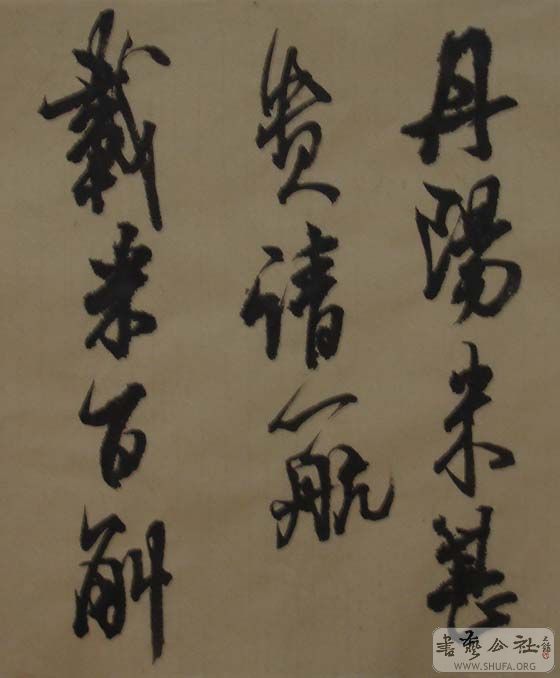 丹陽米甚
貴請一航
載米百斛
書藝公社
WWW.SHUFA.ORG